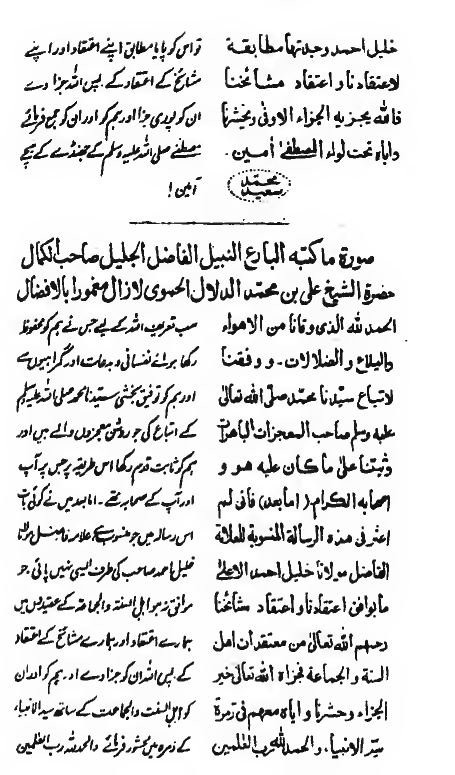 خليل احمد وجدتها مطابقة
لاعتقادنا و اعتقاد مشائخنا
فالله يجزيه الجزاء الاوفى ويحشرنا
واياه تحت لواء المصطفےٰ امين.
محمد
سعيد
تو اس کو پایا مطابق اپنے اعتقاد اور اپنے
مشائخ کے اعتقاد کے پس اللہ جزا دے
ان کو پوری جزا اور ہم کو اور ان کو جمع فرمائے
مصطفےٰ صلی اللہ علیہ وسلم کے جھنڈے کے نیچے
آمین!
صورة ما كتبه البارع النبيل الفاضل الجليل صاحب الكمال
حضرة الشيخ على بن محمد الدلال الحموى لا زال مغمورا بالافضال
الحمد لله الذى وقانا من الاهواء
والبلاع و الضلالات. و وفقنا
لاتباع سيّدنا محمّد صلى الله تعالىٰ
عليه وسلم صاحب المعجزات الباهرات
وثبتنا علىٰ ما كان عليه هو و
اصحابه الكرام (اما بعد) فانى لم
اعثر فى هذه الرسالة المنسوبة للعلامة
الفاضل مولانا خليل احمد الا علىٰ
ما يوافق اعتقادنا و اعتقاد مشائخنا
رحمهم الله تعالىٰ من معتقدات اهل
السنة و الجماعة فجزاه الله تعالىٰ خير
الجزاء وحشرنا و اياه معهم فى زمرة
سيّد الانبياء. والحمد لله رب العٰلمين
سب تعریف اللہ کے لیے جس نے ہم کو محفوظ
رکھا ہوائے نفسانی و بدعات اور گمراہیوں سے
اور ہم کو توفیق بخشی سیدنا محمد صلی اللہ علیہ وسلم
کے اتباع کی جو روشن معجزوں والے ہیں اور
ہم کو ثابت قدم رکھا اس طریقہ پر جس پر آپ
اور آپ کے صحابہ تھے۔ اما بعد میں نے کوئی بات
اس رسالہ میں جو منسوب ہے علامہ فاضل مولانا
خلیل احمد صاحب کی طرف ایسی نہیں پائی جو
موافق نہ ہو اہل السنۃ والجماعۃ کے عقیدوں میں
ہمارے اعتقاد اور ہمارے مشائخ کے اعتقاد
کے پس اللہ ان کو جزا دے اور ہم کو اور ان
کو اہل السنت والجماعت کے ساتھ سید الانبیاء
کے زمرہ میں محشور فرمائے والحمد للہ رب العٰلمین